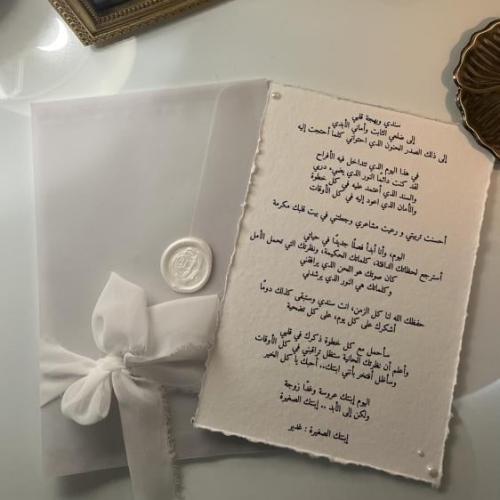 سندي وبهجة قلبي
إلى ضلعي الثابت وأماني الأبدي
إلى ذلك الصدر الحنون الذي احتواني كلما أحتجت إليه
في هذا اليوم الذي تتداخل فيه الأفراح
لقد كنت دائمًا النور الذي يضيء دربي
والسند الذي أعتمد عليه في كل خطوة
والأمان الذي اعود إليه في كل الأوقات
أحسنت تربيتي و رعيت مشاعري وجعلتني في بيت قلبك مكرمة
اليوم، وأنا أبدأ فصلًا جديدًا في حياتي
أسترجع لحظاتك الدافئة، كلماتك الحكيمة، ونظرتك التي تحمل الأمل
كان صوتك هو اللحن الذي يرافقني
وكلماتك هي النور الذي يرشدني
حفظك الله لنا كل الزمن، انت سندي وستبقى كذلك دومًا
أشكرك على كل يوم، على كل تضحية
سأحمل مع كل خطوة ذكرك في قلبي
وأعلم أن نظرتك الحانية ستظل تراقبني في كل الأوقات
وسأظل أفتخر بأني ابنتك.. أحبك يا كل الخير
اليوم إبنتك عروسة وغدًا زوجة
ولكن إلى الأبد .. إبنتك الصغيرة
إبنتك الصغيرة : غدير